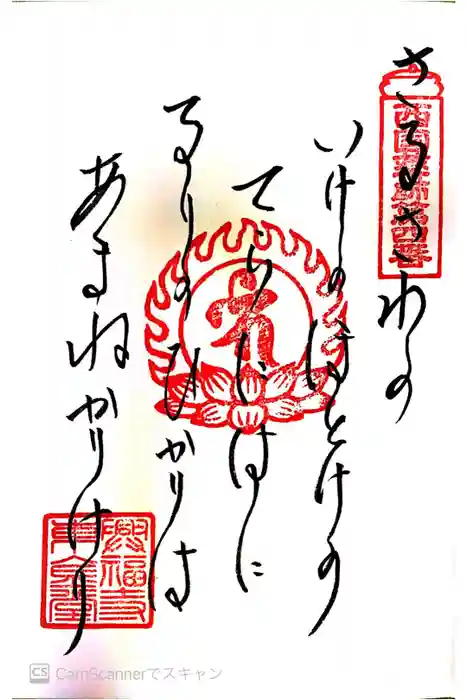 西国薬師第四番
さるさわの
いけのほとけの
てらにはに
るりのひかりは
あまねかりけり
興福寺
東金堂
CS CamScannerでスキャン